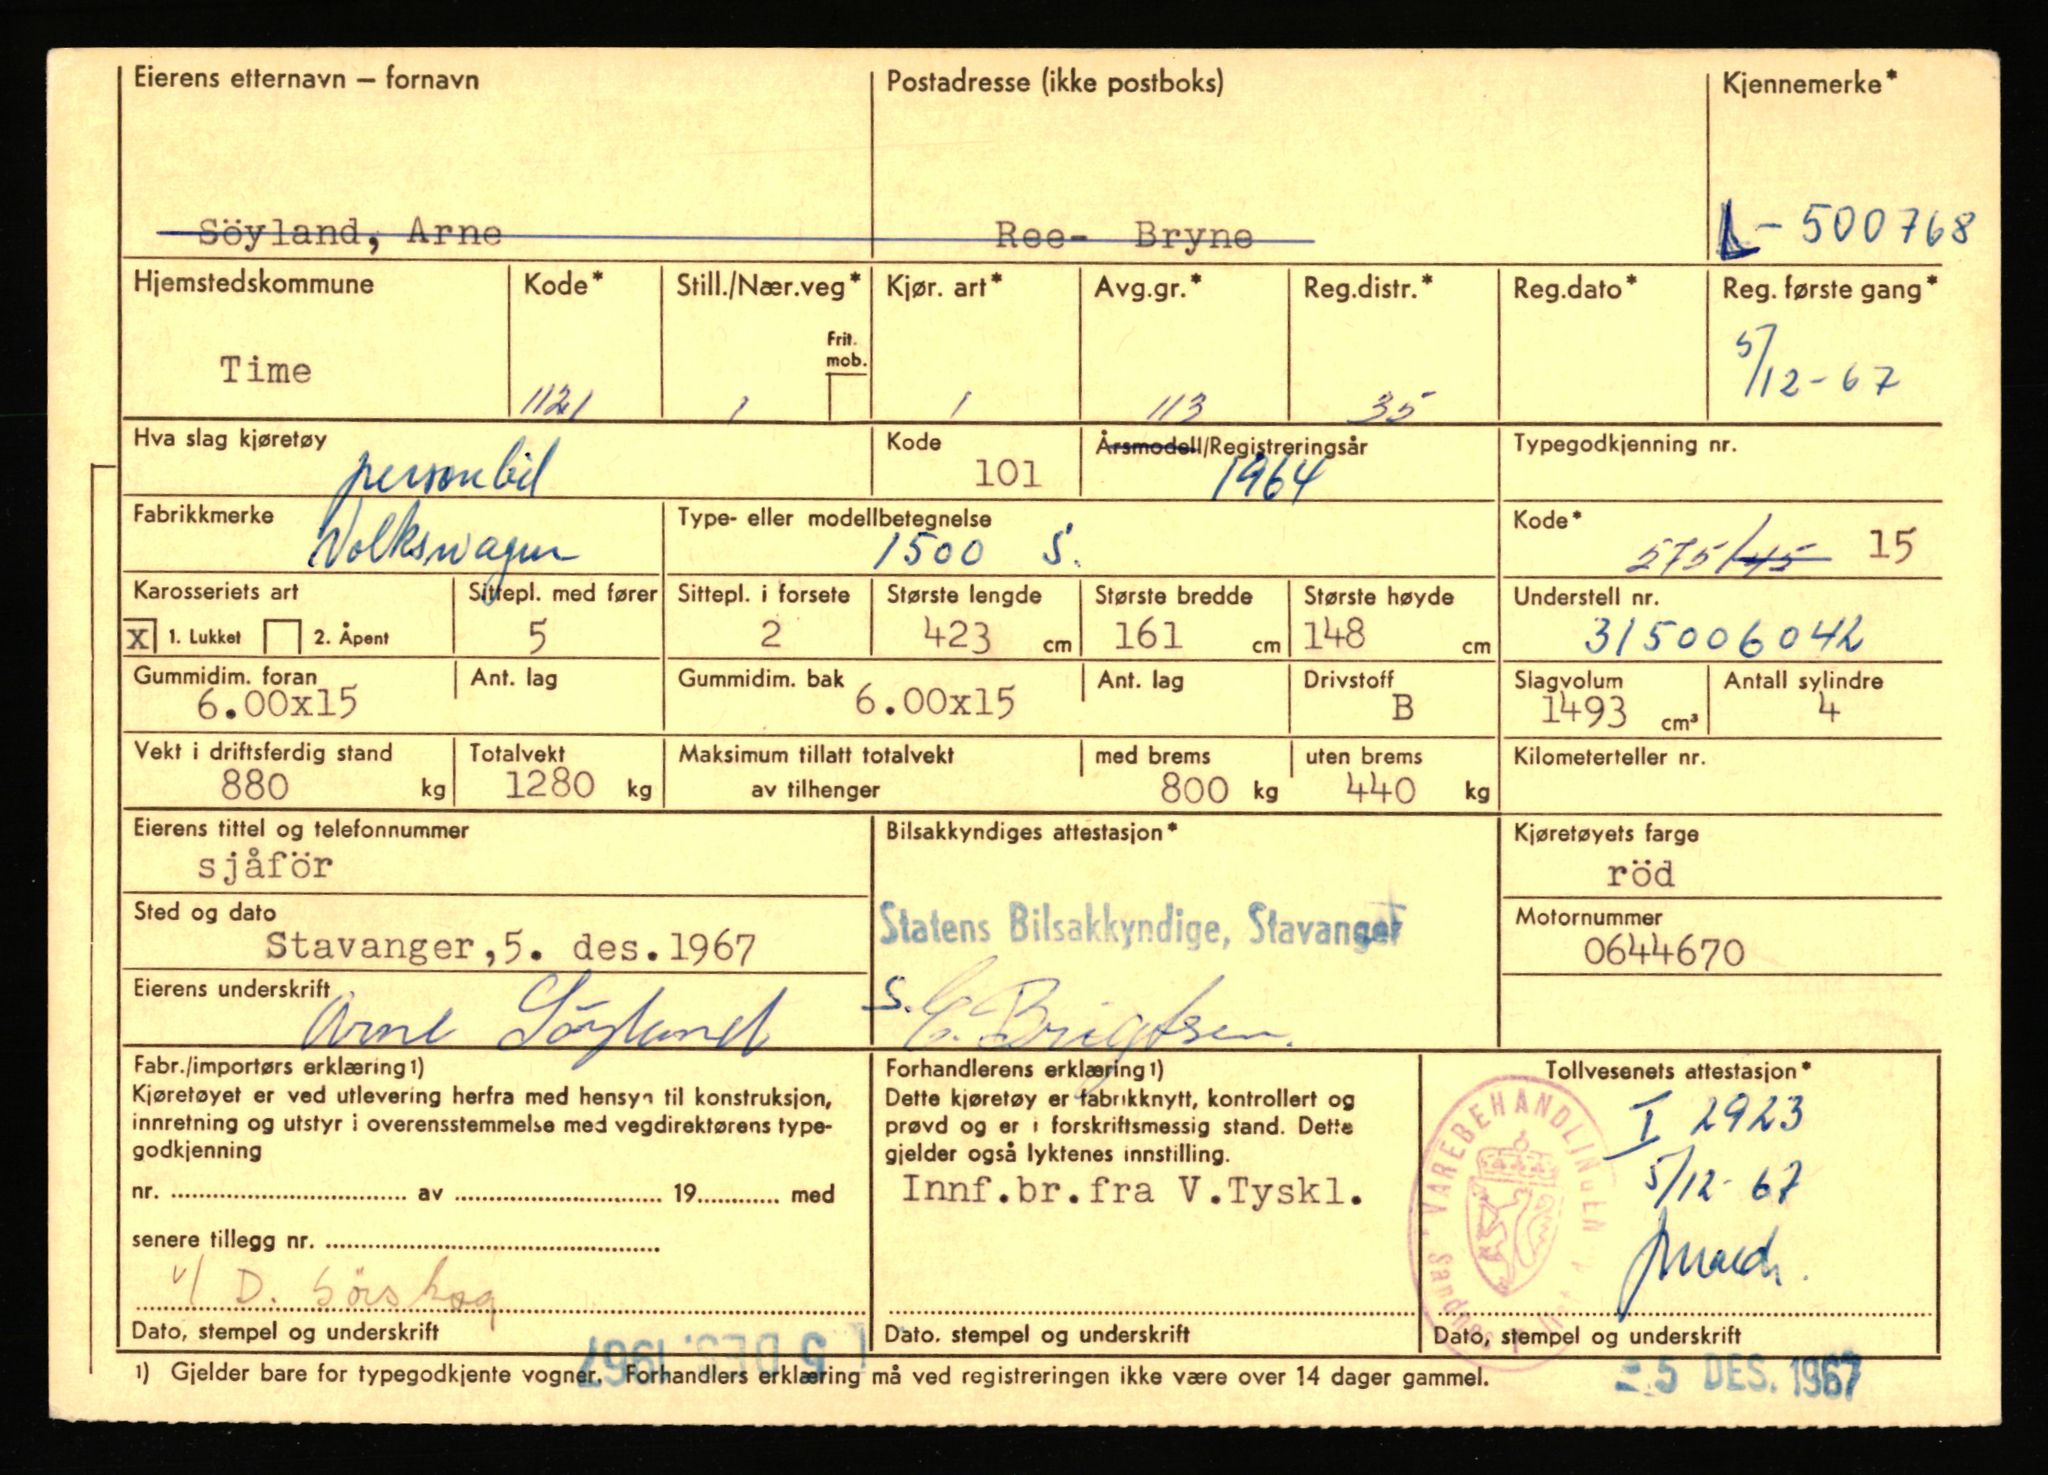 Eierens etternavn – fornavn Postadresse (ikke postboks) Kjennemerke*
Söyland, Arne Ree- Bryne L-500768
Hjemstedskommune Kode* Still./Nær.veg* Kjør. art* Avg.gr.* Reg.distr.* Reg.dato* Reg. første gang*
Frit. mob.
Time 1121 1 1 113 35 5/12-67
Hva slag kjøretøy Kode Årsmodell/Registreringsår Typegodkjenning nr.
personbil 101 1964
Fabrikkmerke Type- eller modellbetegnelse Kode*
Volkswagen 1500 S. 575/45 15
Karosseriets art Sittepl. med fører Sittepl. i forsete Største lengde Største bredde Største høyde Understell nr.
X 1. Lukket 2. Åpent 5 2 423 cm 161 cm 148 cm 315006042
Gummidim. foran Ant. lag Gummidim. bak Ant. lag Drivstoff Slagvolum Antall sylindre
6.00x15 6.00x15 B 1493 cm³ 4
Vekt i driftsferdig stand Totalvekt Maksimum tillatt totalvekt med brems uten brems Kilometerteller nr.
880 kg 1280 kg av tilhenger 800 kg 440 kg
Eierens tittel og telefonnummer Bilsakkyndiges attestasjon* Kjøretøyets farge
sjåför röd
Sted og dato Statens Bilsakkyndige, Stavanger Motornummer
Stavanger,5. des.1967 0644670
Eierens underskrift
Arne Söyland S. C. Brigtsen.
Fabr./importørs erklæring1) Forhandlerens erklæring1) Tollvesenets attestasjon*
Kjøretøyet er ved utlevering herfra med hensyn til konstruksjon, Dette kjøretøy er fabrikknytt, kontrollert og I 2923
innretning og utstyr i overensstemmelse med vegdirektørens type- prøvd og er i forskriftsmessig stand. Dette
godkjenning gjelder også lyktenes innstilling.
nr. av 19 med Innf.br.fra V.Tyskl. 5/12-67
senere tillegg nr.
VAREBEHANDLINGEN
v/ D. Sörskog
Dato, stempel og underskrift Dato. stempel og underskrift Dato, stempel og underskrift
5 DES. 1967
1) Gjelder bare for typegodkjente vogner. Forhandlers erklæring må ved registreringen ikke være over 14 dager gammel.
-5 DES. 1967